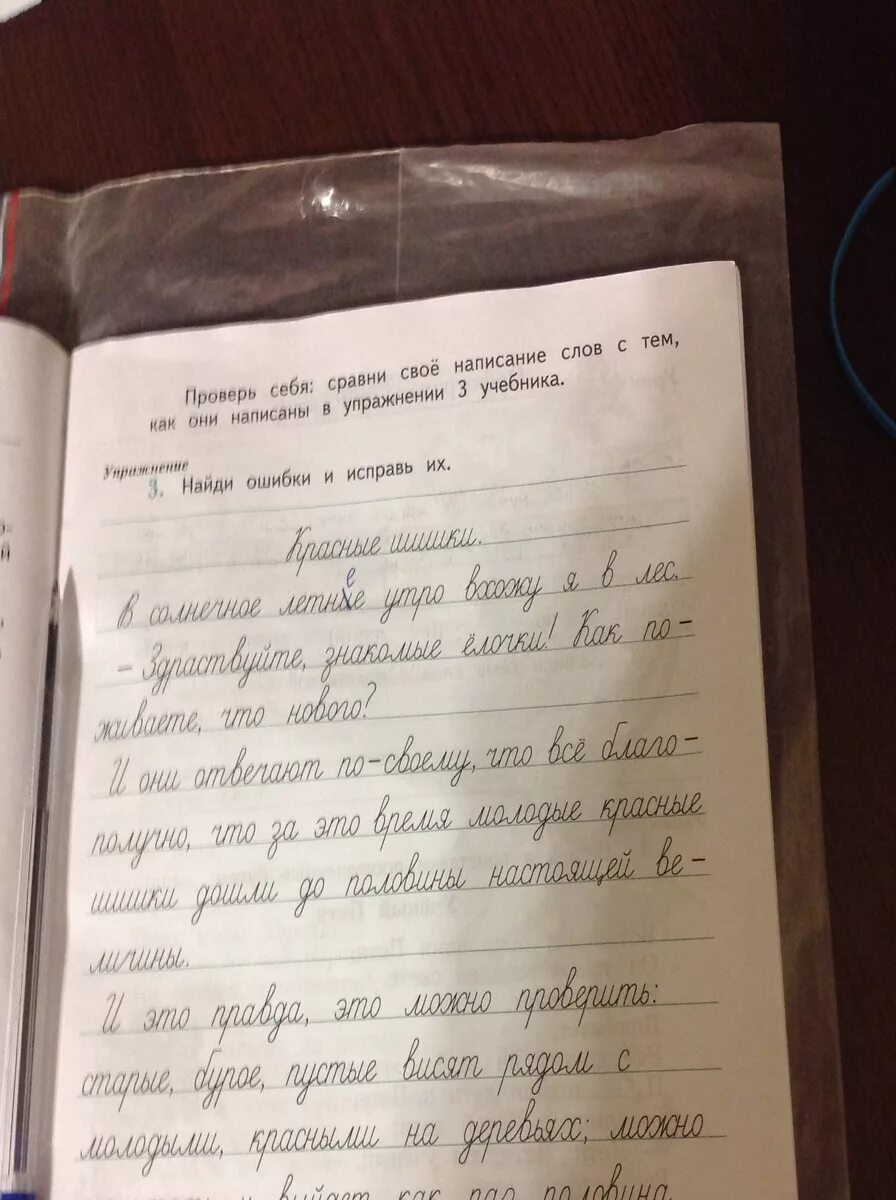 Проверь себя: сравни своё написание слов с тем,
как они написаны в упражнении 3 учебника.
Упражнение
3. Найди ошибки и исправь их.
Красные шишки.
е
В солнечное летние утро вхожу я в лес.
– Здраствуйте, знакомые ёлочки! Как по-
живаете, что нового?
И они отвечают по-своему, что всё благо-
получно, что за это время молодые красные
шишки дошли до половины настоящей ве-
личины.
И это правда, это можно проверить:
старые, бурое, пустые висят рядом с
молодыми, красными на деревьях; можно
и выйдет как раз половина.